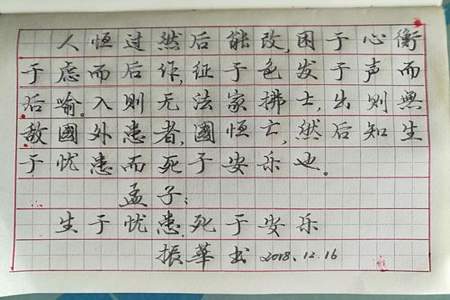 人恒过然后能改,困于心衡
于虑而后作,征于色发于声而
后喻.入则无法家拂士,出则無
敌國外患者,國恒亡,然后知生
于忧患而死于安乐也.
孟子:
生于忧患,死于安乐
振華书 2018.12.16